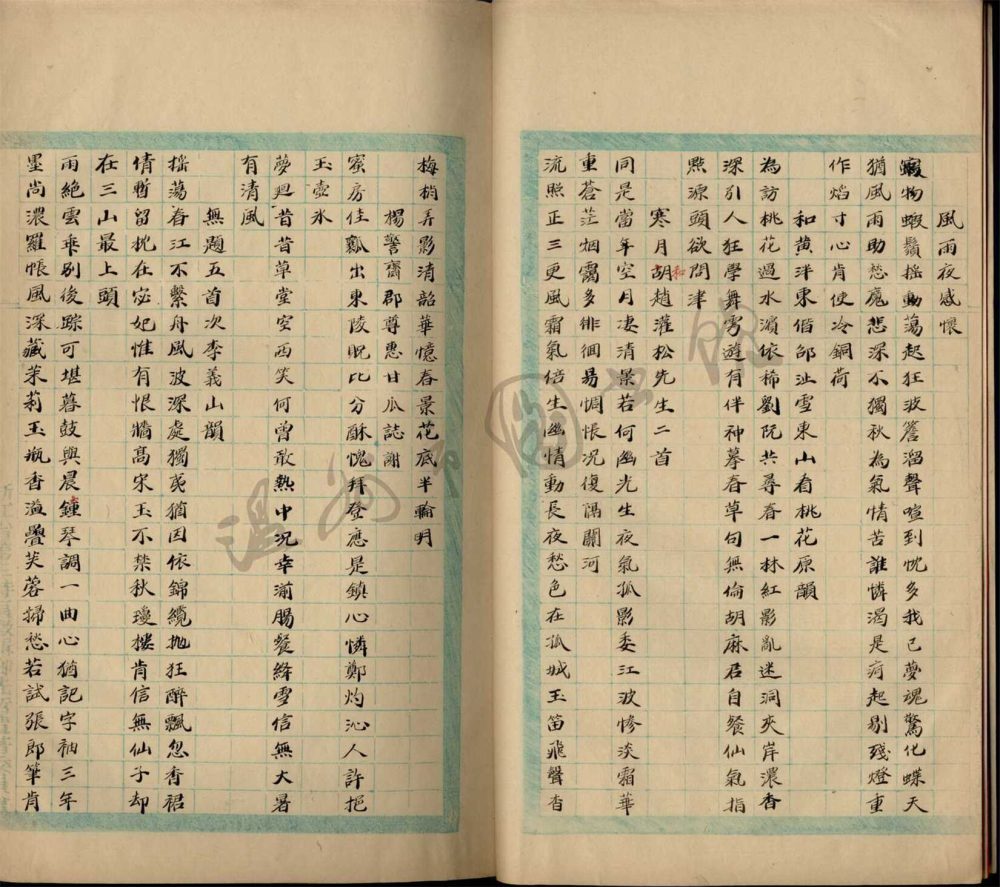 風雨夜感懷
蝦物蝦鬚搖動蕩起狂波簷溜聲喧到枕多我已夢魂驚化蝶天
猶風雨助愁魔悲深不獨秋為氣情苦誰憐渴是疴起剔殘燈重
作焰寸心肯使冷銅荷
和黃泮東偕邵沚雪東山看桃花原韻
為訪桃花過水濱依稀劉阮共尋春一林紅影亂迷洞夾岸濃香
深引人狂學舞雩遊有伴神摹春草句無倫胡麻君自餐仙氣指
點源頭欲問津
寒月和胡趙灌松先生二首
同是當年空月凄清景若何幽光生夜氣孤影委江波慘淡霜華
重蒼茫烟靄多徘徊易惆悵况復隅關河
流照正三更風霜氣倍生幽情動長夜愁色在孤城玉笛飛聲杳
梅梢弄影清韶華憶春景花底半輪明
楊警齋郡尊惠甘瓜誌謝
蜜房佳瓤出東陵貺比分酥愧拜登應是鎮心憐鄭灼沁人許挹
玉壺氷
夢廻昔昔草堂空西笑何曾敢熱中况幸滿腸餐絳雪信無大暑
有清風
無題五首次李義山韻
搖蕩春江不繫舟風波深處獨夷猶因依錦纜抛狂醉飄忽香裙
倩暫留枕在宓妃惟有恨牆髙宋玉不禁秋瓊樓肯信無仙子却
在三山最上頭
雨絶雲乖別後踪可堪暮鼓與晨鐘琴調一曲心猶記字袖三年
墨尚濃羅帳風深藏茉莉玉瓶香溢疊芙蓉掃愁若試張郎筆肯